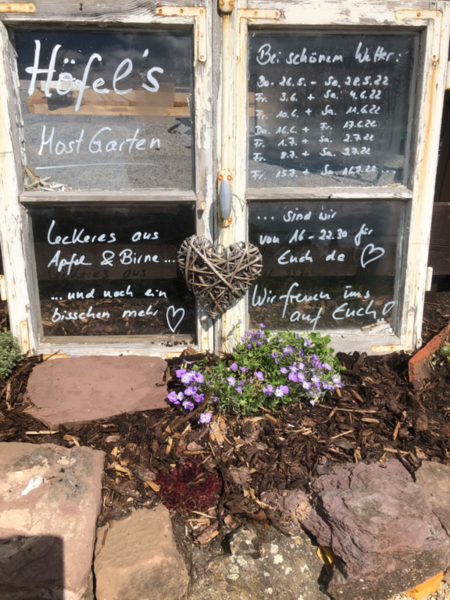 Höfel's
Most Garten
Leckeres aus
Apfel & Birne ...
... und noch ein
bisschen mehr
Bei schönem Wetter:
Do. 26.5. - Sa. 28.5.22
Fr. 3.6. + Sa. 4.6.22
Fr. 10.6. + Sa. 11.6.22
Do. 16.6. + Fr. 17.6.22
Fr. 1.7. + Sa. 2.7.22
Fr. 8.7. + Sa. 9.7.22
Fr. 15.7. + Sa. 16.7.22
... sind wir
von 16 - 22.30 für
Euch da
Wir freuen uns
auf Euch